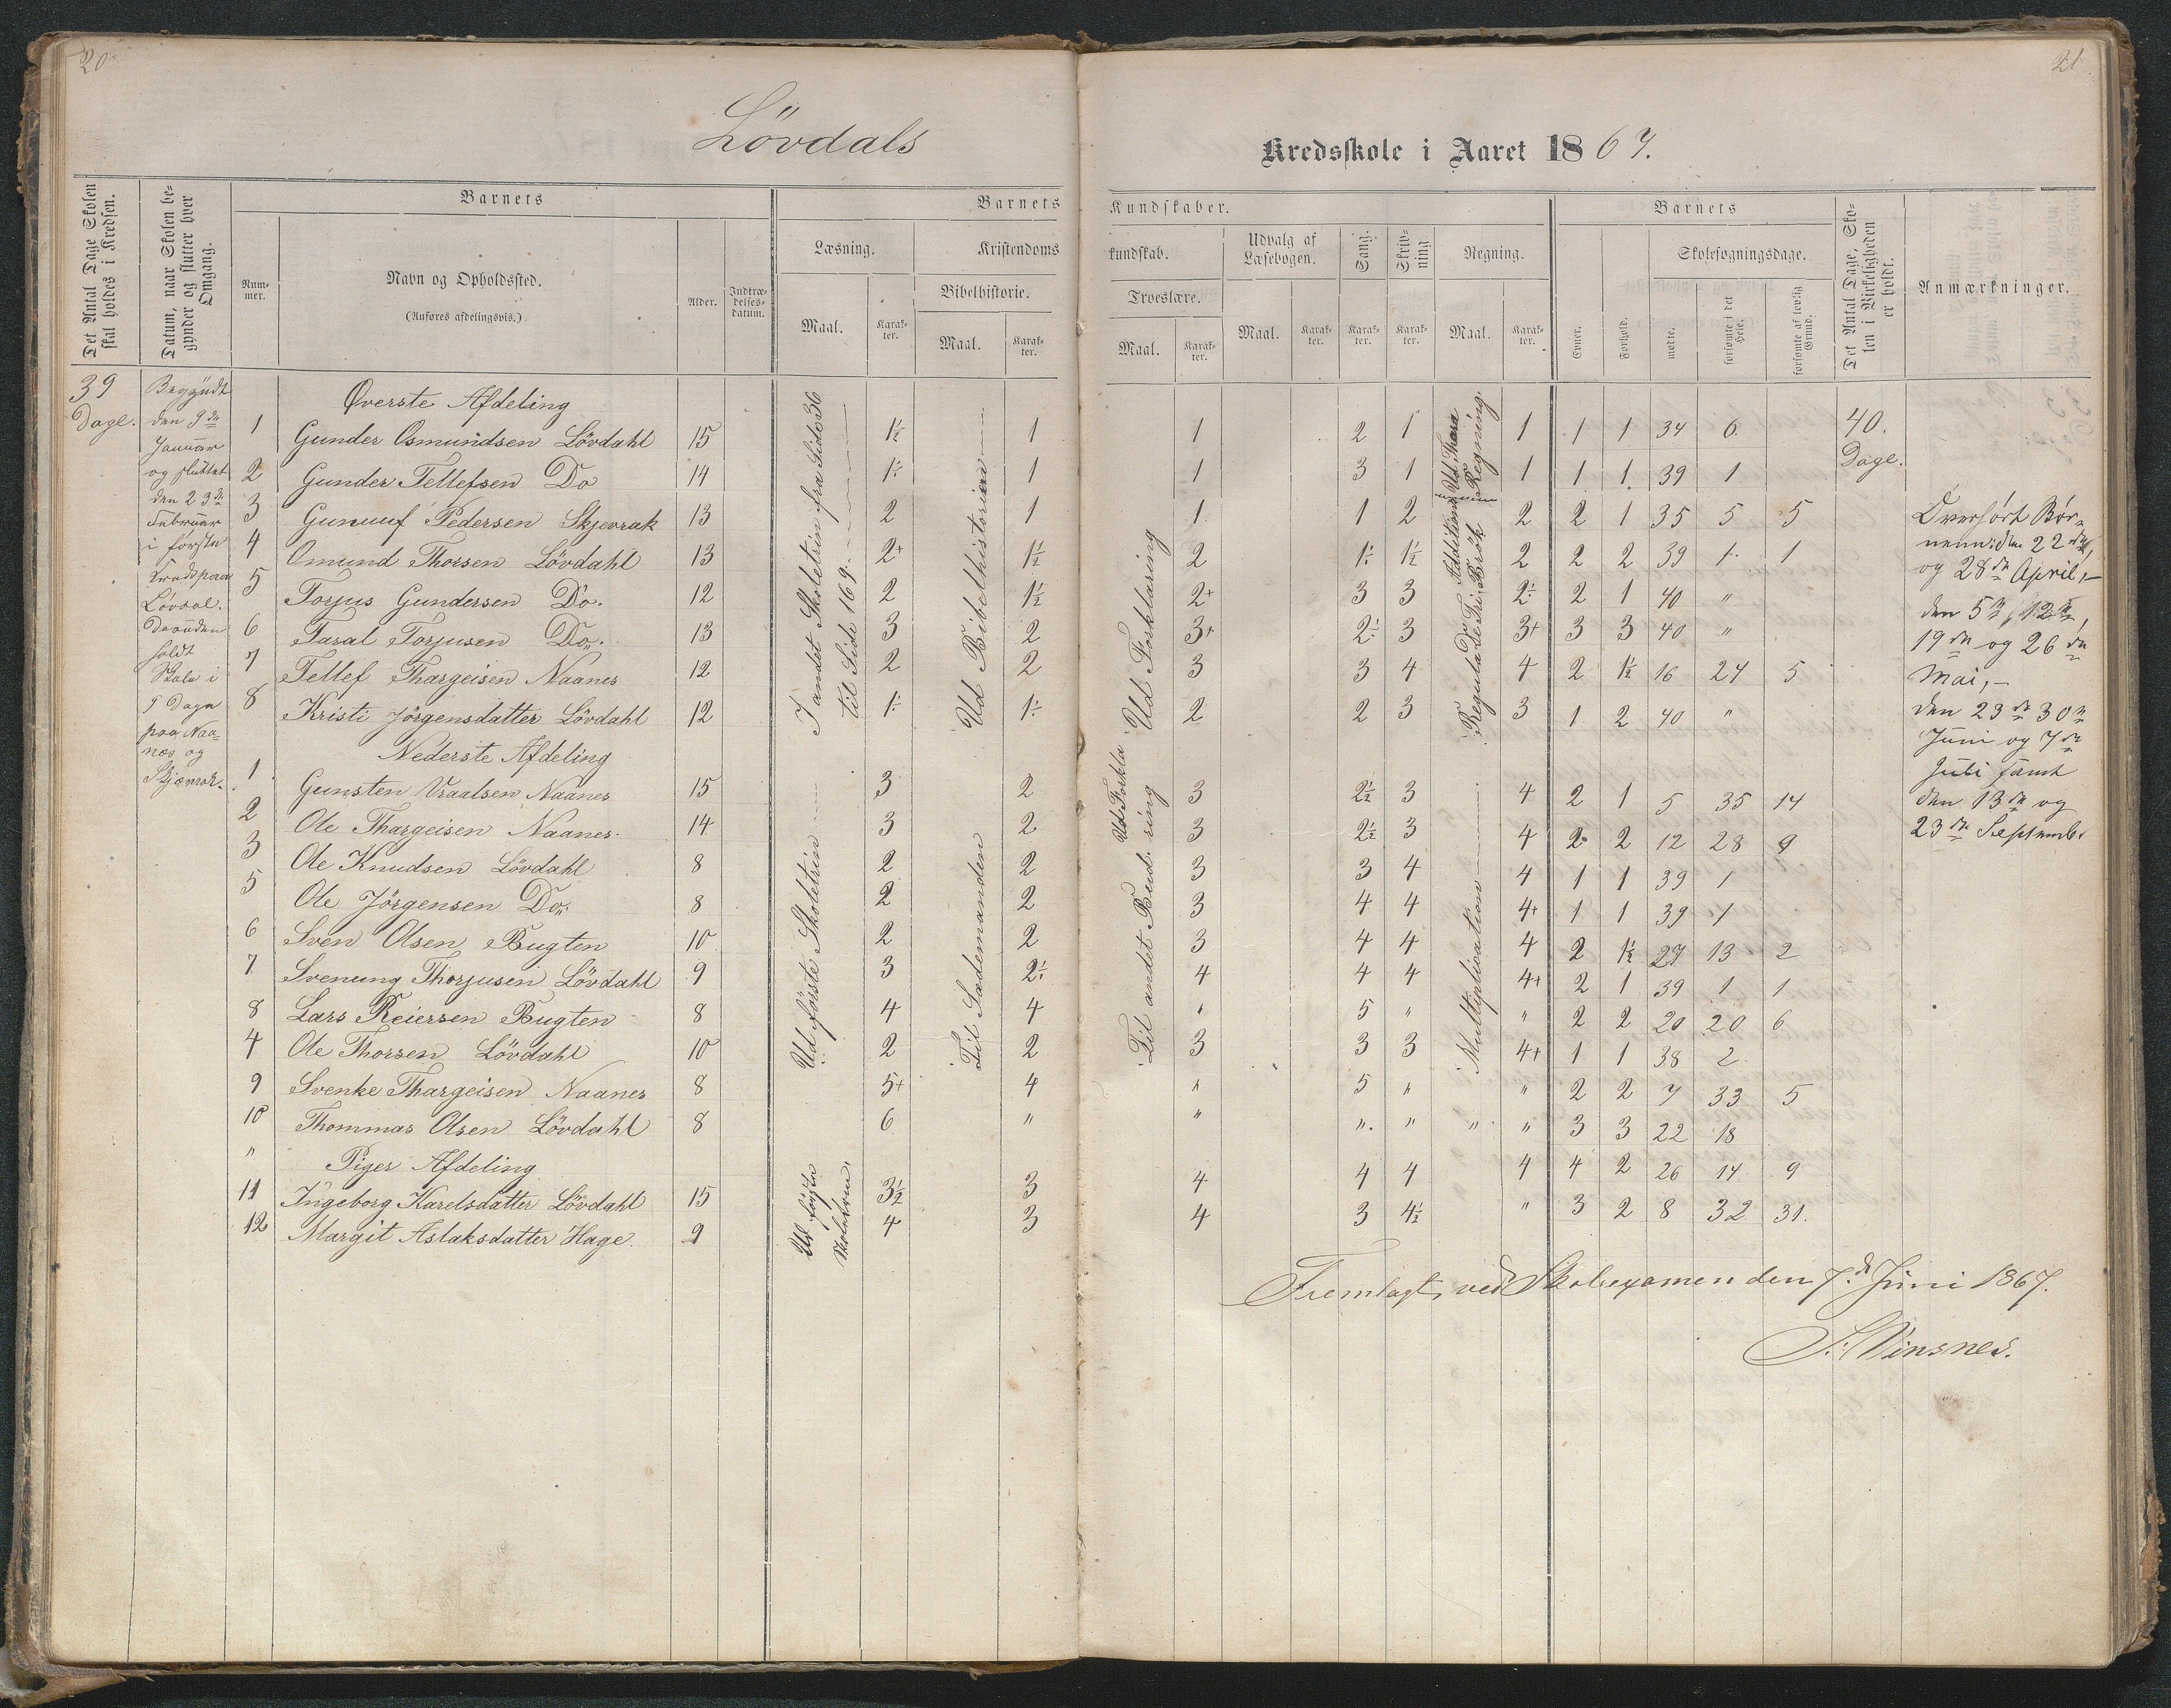 20
21
Lövdals
Kredsskole i Aaret 1867.
Det Antal Dage Skolen skal holdes i Kredsen.
Datum, naar Skolen begynder og slutter hver Omgang.
Barnets
Num-mer.
Navn og Opholdssted.
(Anføres afdelingsvis.)
Alder.
Indtræ-delses-datum.
Barnets
Læsning.
Maal.
Karak-ter.
Kristendoms
Bibelhistorie.
Maal.
Karak-ter.
Kundskaber.
kundskab.
Troeslære.
Maal.
Karak-ter.
Udvalg af Læsebogen.
Maal.
Karak-ter.
Sang.
Karak-ter.
Skriv-ning
Karak-ter.
Regning.
Maal.
Karak-ter.
Barnets
Evner.
Forhold.
Skolesøgningsdage.
mødte.
forsømte i det Hele.
forsømte af lovlig Grund.
Det Antal Dage, Skolen i Virkeligheden er holdt.
Anmærkninger.
39
Dage.
Begyndt
den 9de
Januar
og sluttet
den 23de
Februar
i første
Kreds paa
Lövdal.
Desuden
holdt
Skole i
9 Dage
paa Naa=
næs og
Skjævrak.
Øverste Afdeling
1 Gunder Osmundsen Lövdahl 15 1½ 1 1 2 1 1 1 1 34 6
2 Gunder Tellefsen Do 14 1÷ 1 1 3 1 1 1 1 39 1
3 Gunuuf Pedersen Skjevrak 13 2 1 1 1 2 2 2 1 35 5 5
4 Omund Thorsen Lövdahl 13 2+ 1½ 2 1÷ 1½ 2 2 2 39 1 1
5 Torjus Gundersen Do. 12 2 1½ 2+ 3 3 2÷ 2 1 40 "
6 Taral Torjusen Do. 13 3 2 3+ 2÷ 3 3+ 3 3 40 "
7 Tellef Thargeisen Naanes 12 2 2 3 3 4 4 2 1½ 16 24 5
8 Kristi Jörgensdatter Lövdahl 12 1÷ 1÷ 2 2 3 3 1 2 40 "
Nederste Afdeling
1 Gunsten Vraalsen Naanes 15 3 2 3 2½ 3 4 2 1 5 35 14
2 Ole Thargeisen Naanes 14 3 2 3 2½ 3 4 2 2 12 28 9
3 Ole Knudsen Lövdahl 8 2 2 3 3 4 4 1 1 39 1
5 Ole Jörgensen Do. 8 2 2 3 4 4 4+ 1 1 39 1
6 Sven Olsen Bugten 10 2 2 3 4 4 4 2 1½ 27 13 2
7 Svenung Thorjusen Lövdahl 9 3 2÷ 4 4 4 4+ 2 1 39 1 1
8 Lars Reiersen Bugten 8 4 4 " 5 " " 2 2 20 20 6
4 Ole Thorsen Lövdahl 10 2 2 3 3 3 4+ 1 1 38 2
9 Svenke Thargeisen Naanes 8 5+ 4 " 5 " " 2 2 7 33 5
10 Thommas Olsen Lövdahl 8 6 " " " " " " 3 3 22 18
" Piger Afdeling
11 Ingeborg Karelsdatter Lövdahl 15 3½ 3 4 4 4 4 4 2 26 14 9
12 Margit Aslaksdatter Hage 9 4 3 4 3 4½ " 3 2 8 32 31.
I andet Skoletrin fra Side 36
til Side 169.
Ud Bibelhistorien
Ud Forklaring
Regula de Tri Brök Regning.
Ud første Skoletrin
Til Sædemanden
Ud Forkla
ring
Til andet Bud.
Multiplication
Ud første
Skoletrin.
40.
Dage.
Overhørt Bør=
nene: den 22de,
og 28de April,—
den 5te, 12te,
19de og 26de
Mai,—
den 23de 30te
Juni og 7de
Juli samt
den 13de og
23de Septemb.
Fremlagt ved Skoleexamen den 7de Juni 1867.
S. Vinsnes.